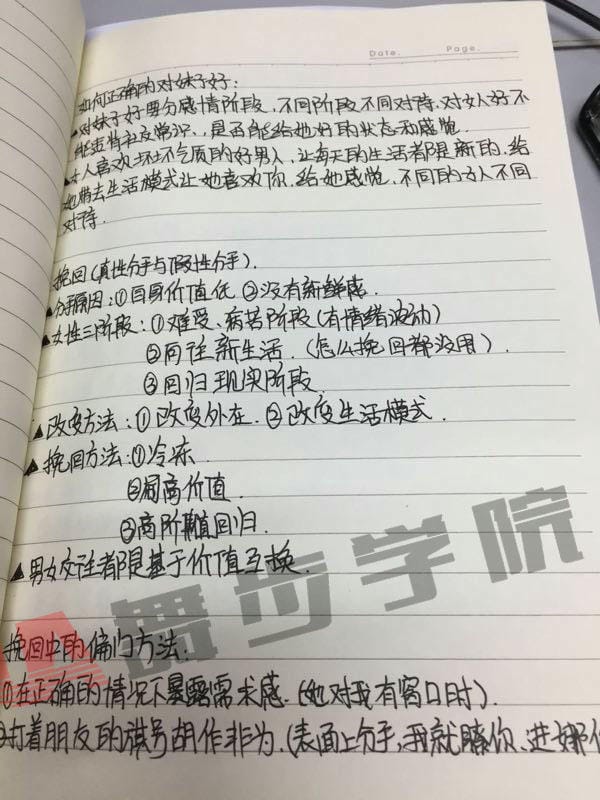 Date.    Page.
如何正确的对妹子好:
▲对妹子好要分感情阶段,不同阶段不同对待.对女人好不
能违背社交常识.,是否能给她好的状态和感觉.
▲女人喜欢坏坏气质的好男人,让每天的生活都是新的.给
她带去生活模式让她喜欢你.给她感觉,不同的女人不同
对待.
挽回(真性分手与假性分手).
▲分手原因:①自身价值低 ②没有新鲜感.
▲女性三阶段:①难受、病苦阶段(有情绪波动)
②向往新生活.(怎么挽回都没用).
③回归现实阶段.
▲改变方法:①改变外在.②改变生活模式.
▲挽回方法:①冷冻.
②提高价值.
③高阶值回归.
▲男女交往都是基于价值互换.
舞步学院
挽回中的偏门方法:
①在正确的情况下暴露需求感.(她对我有窗口时).
②打着朋友的旗号胡作非为.(表面上分手,我就睡你、